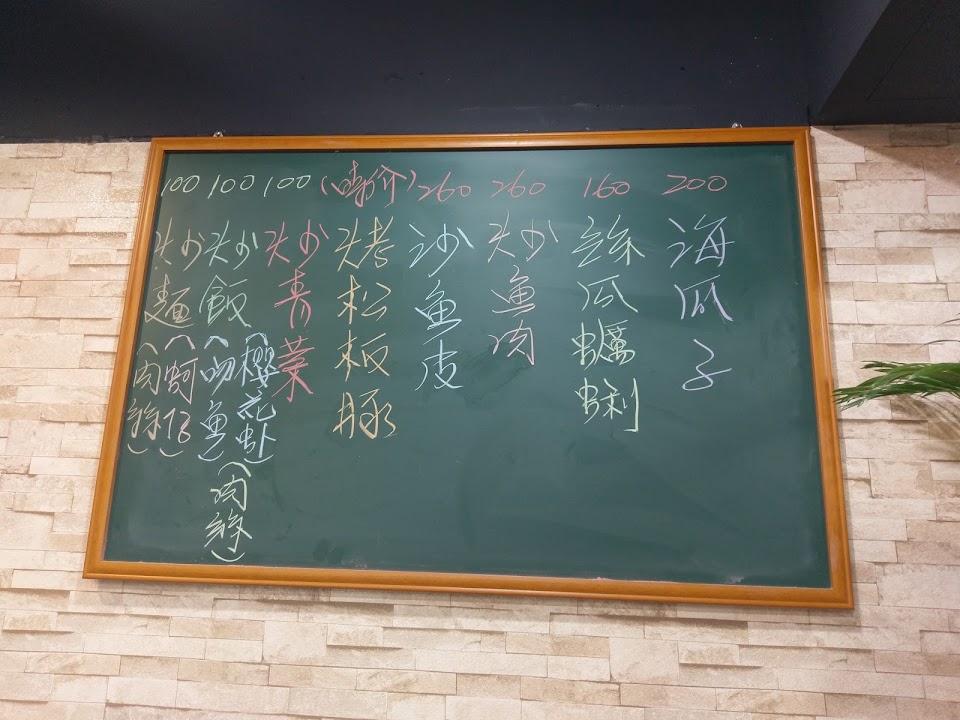 200
海瓜子
160
絲瓜蠣蜊
260
炒魚肉
260
沙魚皮
(時价)
烤松板豚
100
炒青菜
100
炒飯
(櫻花虾)
(吻魚)
(肉絲)
100
炒麵
(蚵仔)
(肉絲)